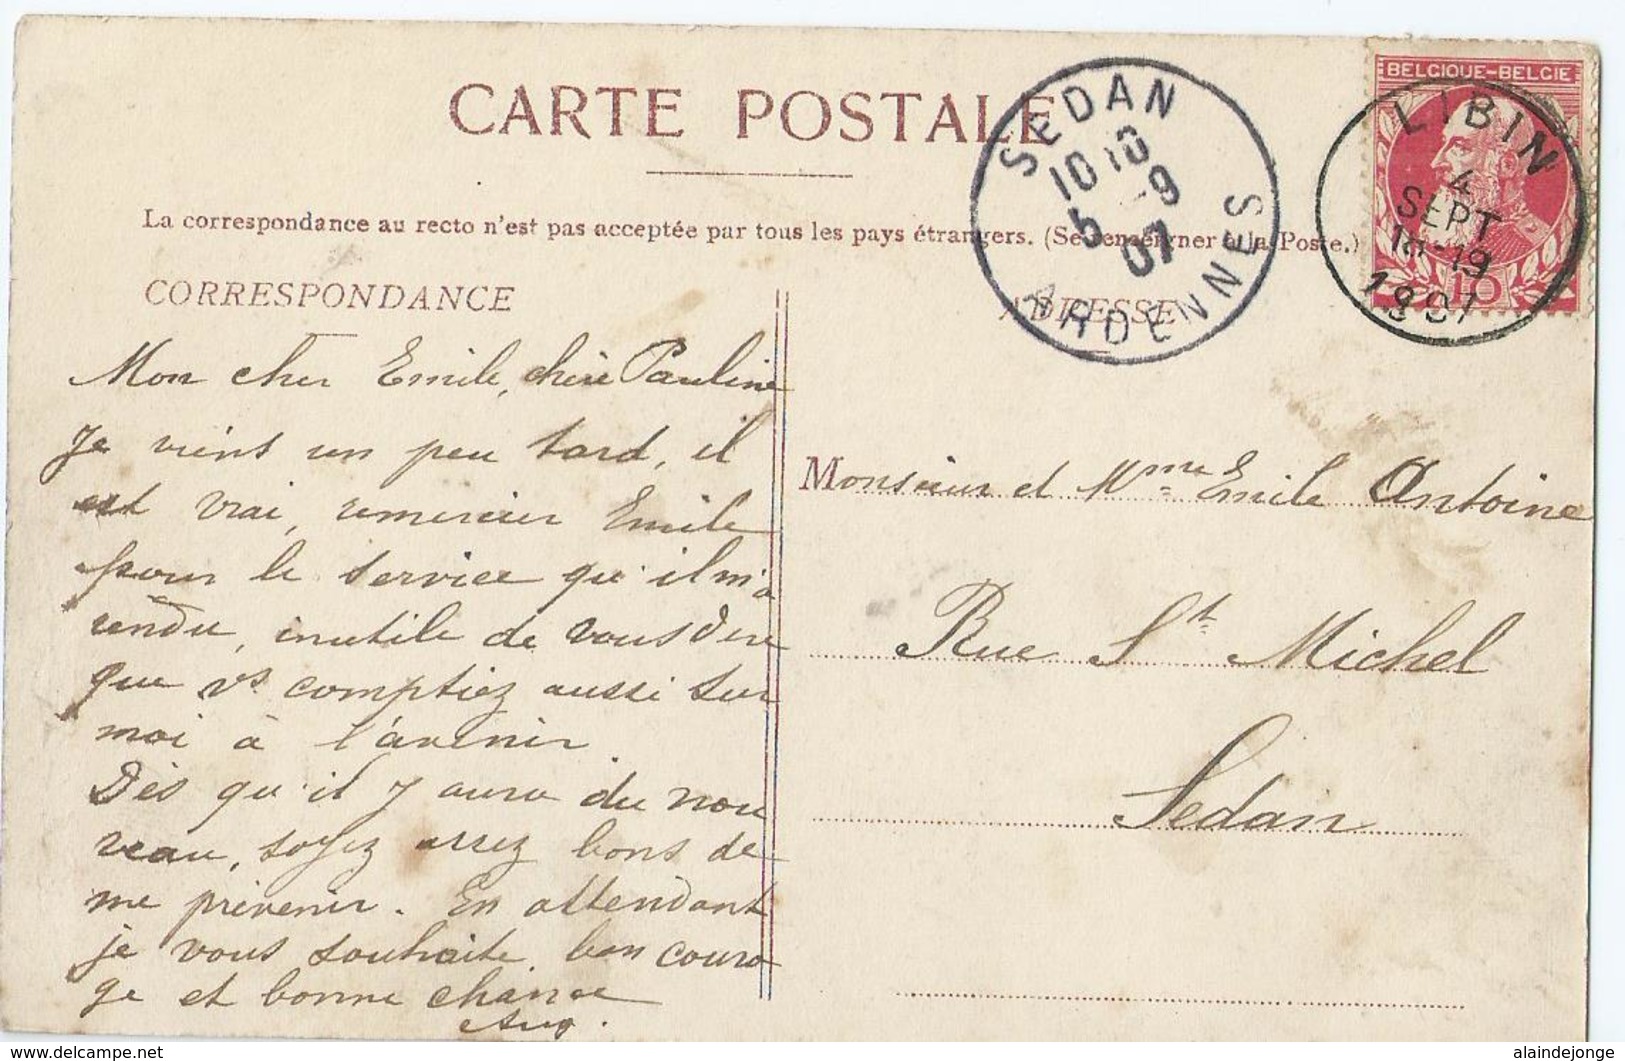 CARTE POSTALE
La correspondance au recto n'est pas acceptée par tous les pays étrangers. (Se renseigner à la Poste.)
CORRESPONDANCE
ADRESSE
BELGIQUE-BELGIE
10
SEDAN
10 10
5 -9
07
ARDENNES
LIBIN
4
SEPT
18-19
1907
Mon cher Emile, chère Pauline
Je viens un peu tard, il
est vrai, remercier Emile
pour le service qu'il m'a
rendu, inutile de vous dire
que vs comptiez aussi sur
moi à l'avenir.
Dès qu'il y aura du nou
veau, soyez assez bons de
me prévenir. En attendant
je vous souhaite bon coura
ge et bonne chance
Aug.
Monsieur et Mme Emile Antoine
Rue St Michel
Sedan
www.delcampe.net
alaindejonge